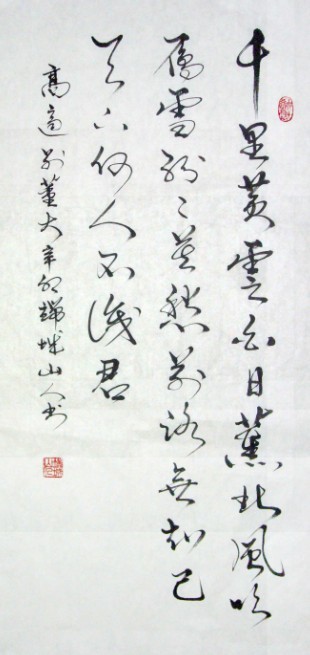 千里黄雲白日薰北風吹
雁雪紛〻莫愁前路無知己
天下何人不識君
高適別董大辛卯城山人書